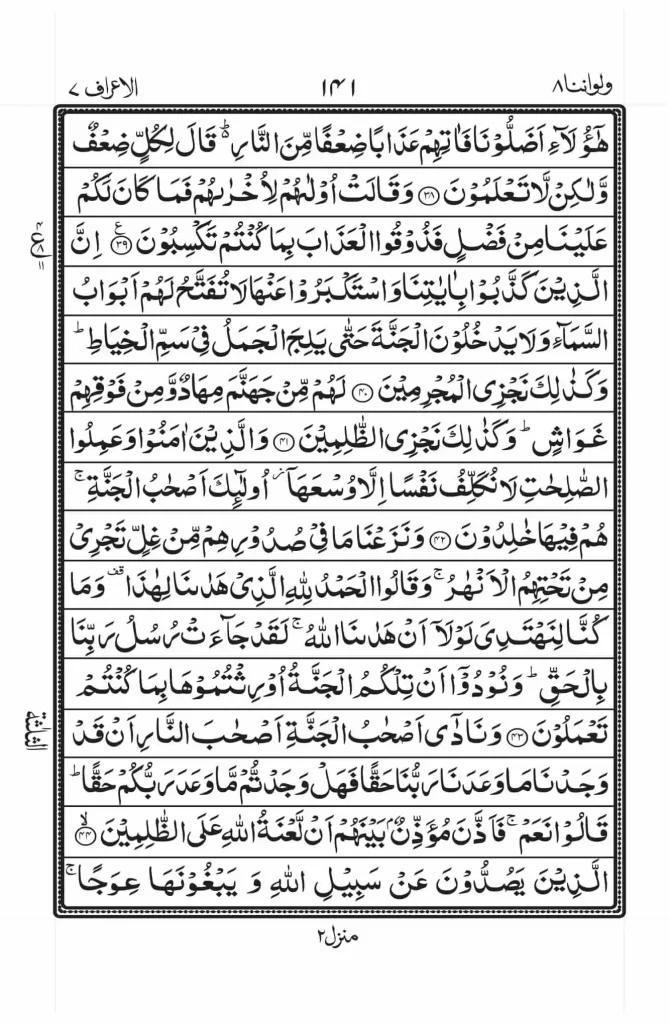 ولواننا ۸ ۱۴۱ الاعراف ۷
هٰۤؤُلَآءِ اَضَلُّوْنَا فَاٰتِهِمْ عَذَابًا ضِعْفًا مِّنَ النَّارِ ؕ۬ قَالَ لِكُلٍّ ضِعْفٌ
وَّلٰكِنْ لَّا تَعْلَمُوْنَ ﴿۳۸﴾ وَقَالَتْ اُوْلٰىهُمْ لِاُخْرٰىهُمْ فَمَا كَانَ لَكُمْ
عَلَيْنَا مِنْ فَضْلٍ فَذُوْقُوا الْعَذَابَ بِمَا كُنْتُمْ تَكْسِبُوْنَ ﴿۳۹﴾ ع اِنَّ
الَّذِيْنَ كَذَّبُوْا بِاٰيٰتِنَا وَاسْتَكْبَرُوْا عَنْهَا لَا تُفَتَّحُ لَهُمْ اَبْوَابُ
السَّمَآءِ وَلَا يَدْخُلُوْنَ الْجَنَّةَ حَتّٰى يَلِجَ الْجَمَلُ فِيْ سَمِّ الْخِيَاطِ ؕ
وَكَذٰلِكَ نَجْزِى الْمُجْرِمِيْنَ ﴿۴۰﴾ لَهُمْ مِّنْ جَهَنَّمَ مِهَادٌ وَّمِنْ فَوْقِهِمْ
غَوَاشٍ ؕ وَكَذٰلِكَ نَجْزِى الظّٰلِمِيْنَ ﴿۴۱﴾ وَالَّذِيْنَ اٰمَنُوْا وَعَمِلُوا
الصّٰلِحٰتِ لَا نُكَلِّفُ نَفْسًا اِلَّا وُسْعَهَاۤ ز اُولٰٓئِكَ اَصْحٰبُ الْجَنَّةِ ۚ
هُمْ فِيْهَا خٰلِدُوْنَ ﴿۴۲﴾ وَنَزَعْنَا مَا فِيْ صُدُوْرِهِمْ مِّنْ غِلٍّ تَجْرِيْ
مِنْ تَحْتِهِمُ الْاَنْهٰرُ ۚ وَقَالُوا الْحَمْدُ لِلّٰهِ الَّذِيْ هَدٰىنَا لِهٰذَا قف وَمَا
كُنَّا لِنَهْتَدِيَ لَوْلَاۤ اَنْ هَدٰىنَا اللّٰهُ ۚ لَقَدْ جَآءَتْ رُسُلُ رَبِّنَا
بِالْحَقِّ ؕ وَنُوْدُوْۤا اَنْ تِلْكُمُ الْجَنَّةُ اُوْرِثْتُمُوْهَا بِمَا كُنْتُمْ
تَعْمَلُوْنَ ﴿۴۳﴾ وَنَادٰۤى اَصْحٰبُ الْجَنَّةِ اَصْحٰبَ النَّارِ اَنْ قَدْ
وَجَدْنَا مَا وَعَدَنَا رَبُّنَا حَقًّا فَهَلْ وَجَدْتُّمْ مَّا وَعَدَ رَبُّكُمْ حَقًّا ؕ
قَالُوْا نَعَمْ ۚ فَاَذَّنَ مُؤَذِّنٌۢ بَيْنَهُمْ اَنْ لَّعْنَةُ اللّٰهِ عَلَى الظّٰلِمِيْنَ ﴿۴۴﴾ ۙ
الَّذِيْنَ يَصُدُّوْنَ عَنْ سَبِيْلِ اللّٰهِ وَ يَبْغُوْنَهَا عِوَجًا ۚ
الثلثة
منزل ۲